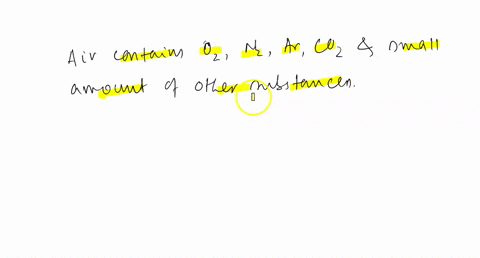 Air contains O₂, N₂, Ar, CO₂ & small
amount of other substances.